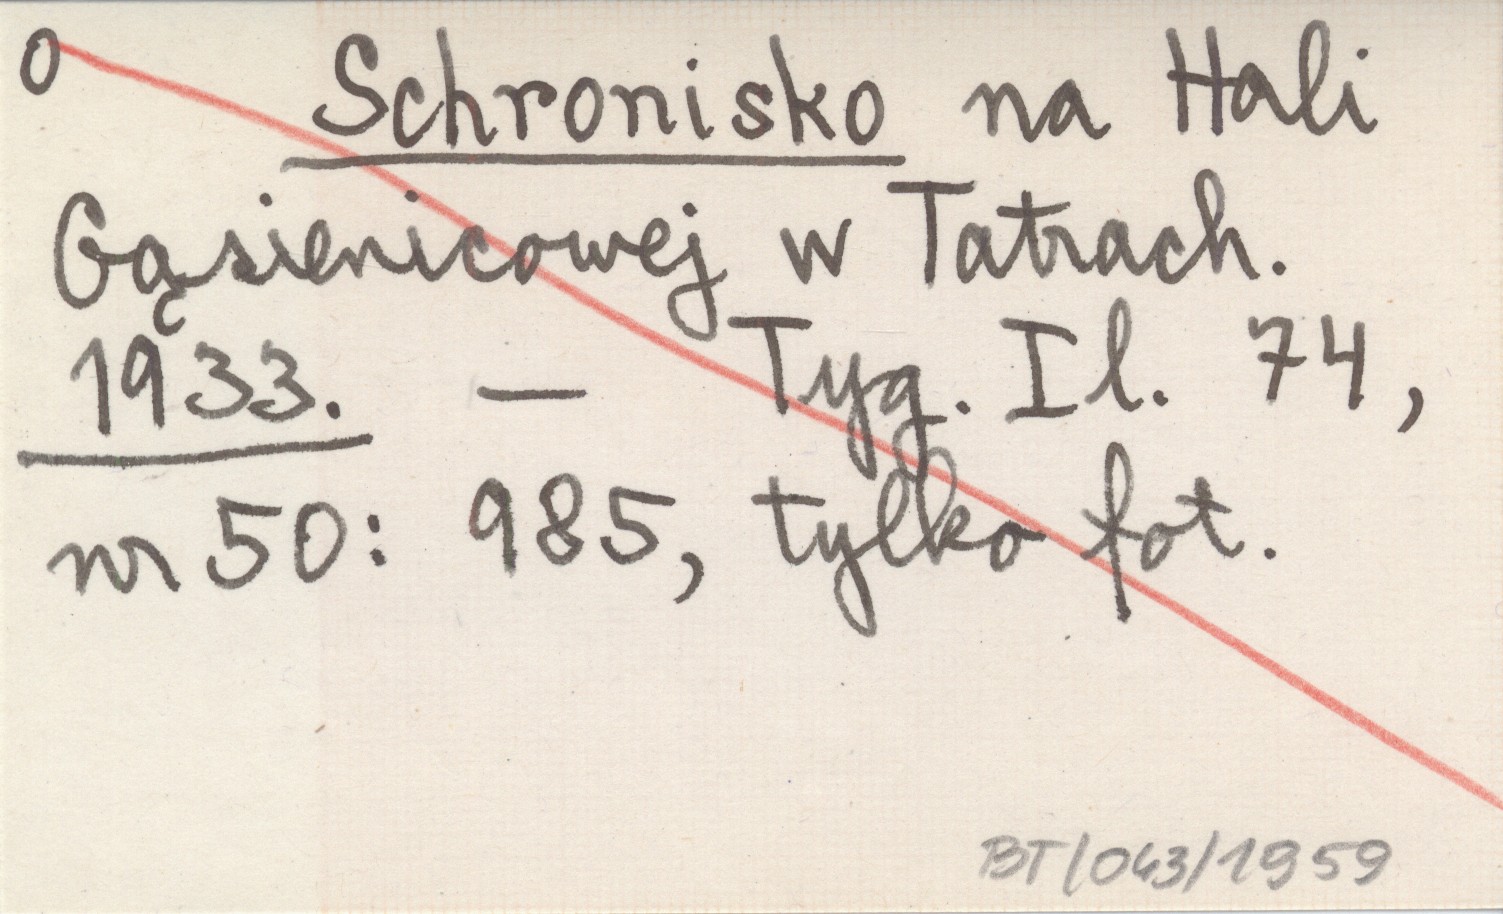 0 Schronisko na Hali
Gąsienicowej w Tatrach.
1933. — Tyg. Il. 74,
nr 50: 985, tylko fot.
BT/043/1959